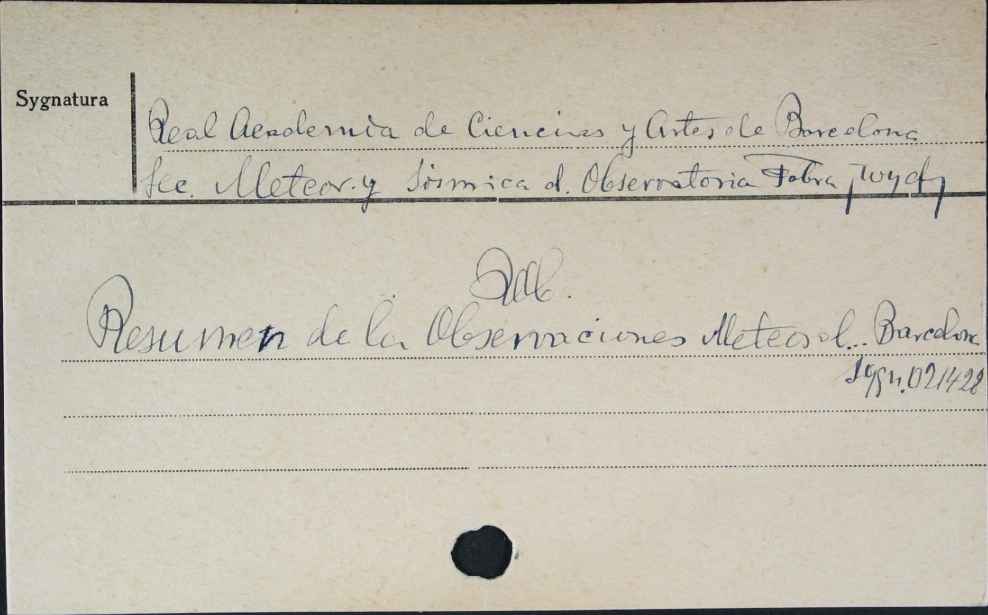 Sygnatura
Real Academia de Ciencias y Artes de Barcelona
Sec. Meteor. y Sismica d. Observatoria Fabra /wyd/
Resumen de la Observaciones Meteorol... Barcelona
Sygn. 021428